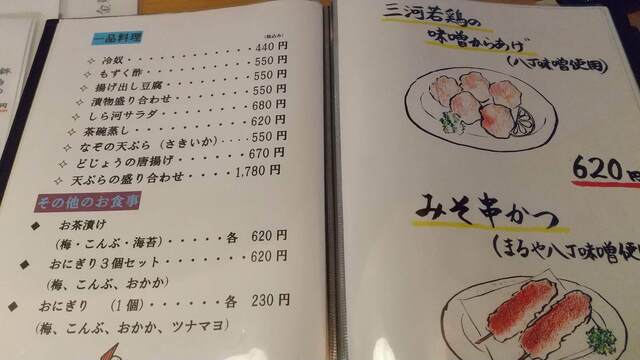 一品料理 (税込み)
✧ 冷奴・・・・・・・・・・・ 440円
✧ もずく酢・・・・・・・・・ 550円
✧ 揚げ出し豆腐・・・・・・・ 550円
✧ 漬物盛り合わせ・・・・・・ 550円
✧ しら河サラダ・・・・・・・ 680円
✧ 茶碗蒸し・・・・・・・・・ 620円
✧ なぞの天ぷら(さきいか)・・・・ 550円
✧ どじょうの唐揚げ・・・・・ 670円
✧ 天ぷらの盛り合わせ・・・・ 1,780円
その他のお食事
◆ お茶漬け
(梅・こんぶ・海苔)・・・・・各 620円
◆ おにぎり3個セット・・・・・・・620円
(梅、こんぶ、おかか)
◆ おにぎり (1個)・・・・・・各 230円
(梅、こんぶ、おかか、ツナマヨ)
三河若鶏の
味噌からあげ
(八丁味噌使用)
620円
みそ串かつ
(まるや八丁味噌使用